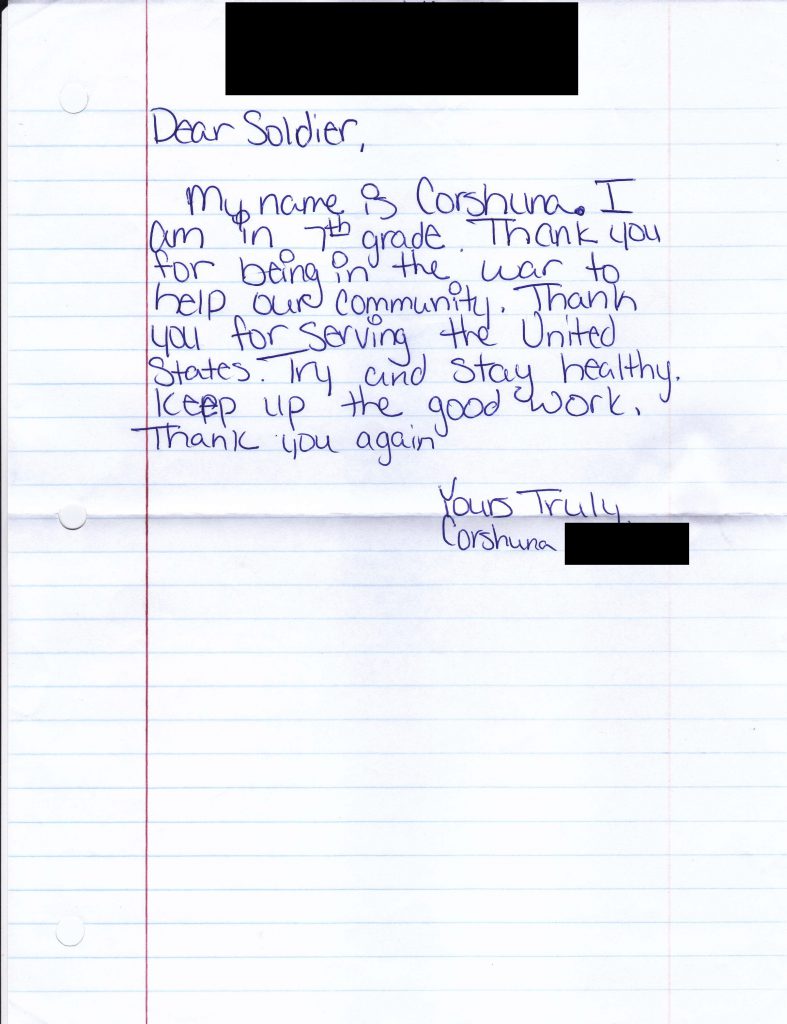 Dear Soldier,
My name is Corshuna. I
am in 7th grade. Thank you
for being in the war to
help our community. Thank
you for serving the United
States. Try and stay healthy.
Keep up the good work.
Thank you again
Yours Truly,
Corshuna